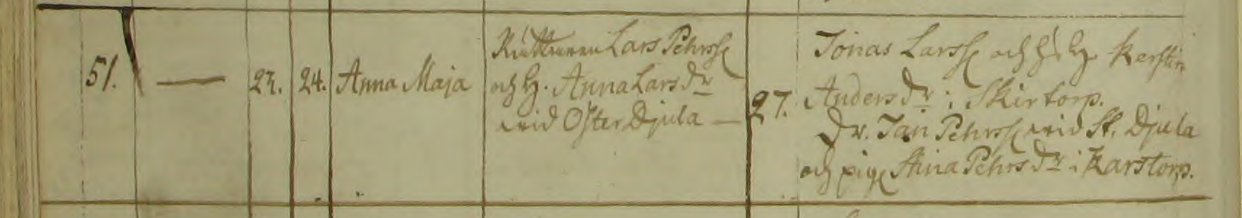 51. — 23. 24. Anna Maja
Ruttaren Lars Pehrss
och H. Anna Lars Dr
wid Öster Djula —
27.
Jonas Larss och H. Kerstin
Anders Dr i Skirtorp.
Dr. Jan Pehrss wid St. Djula
och pig. Anna Pehrs Dr i Karstorp.